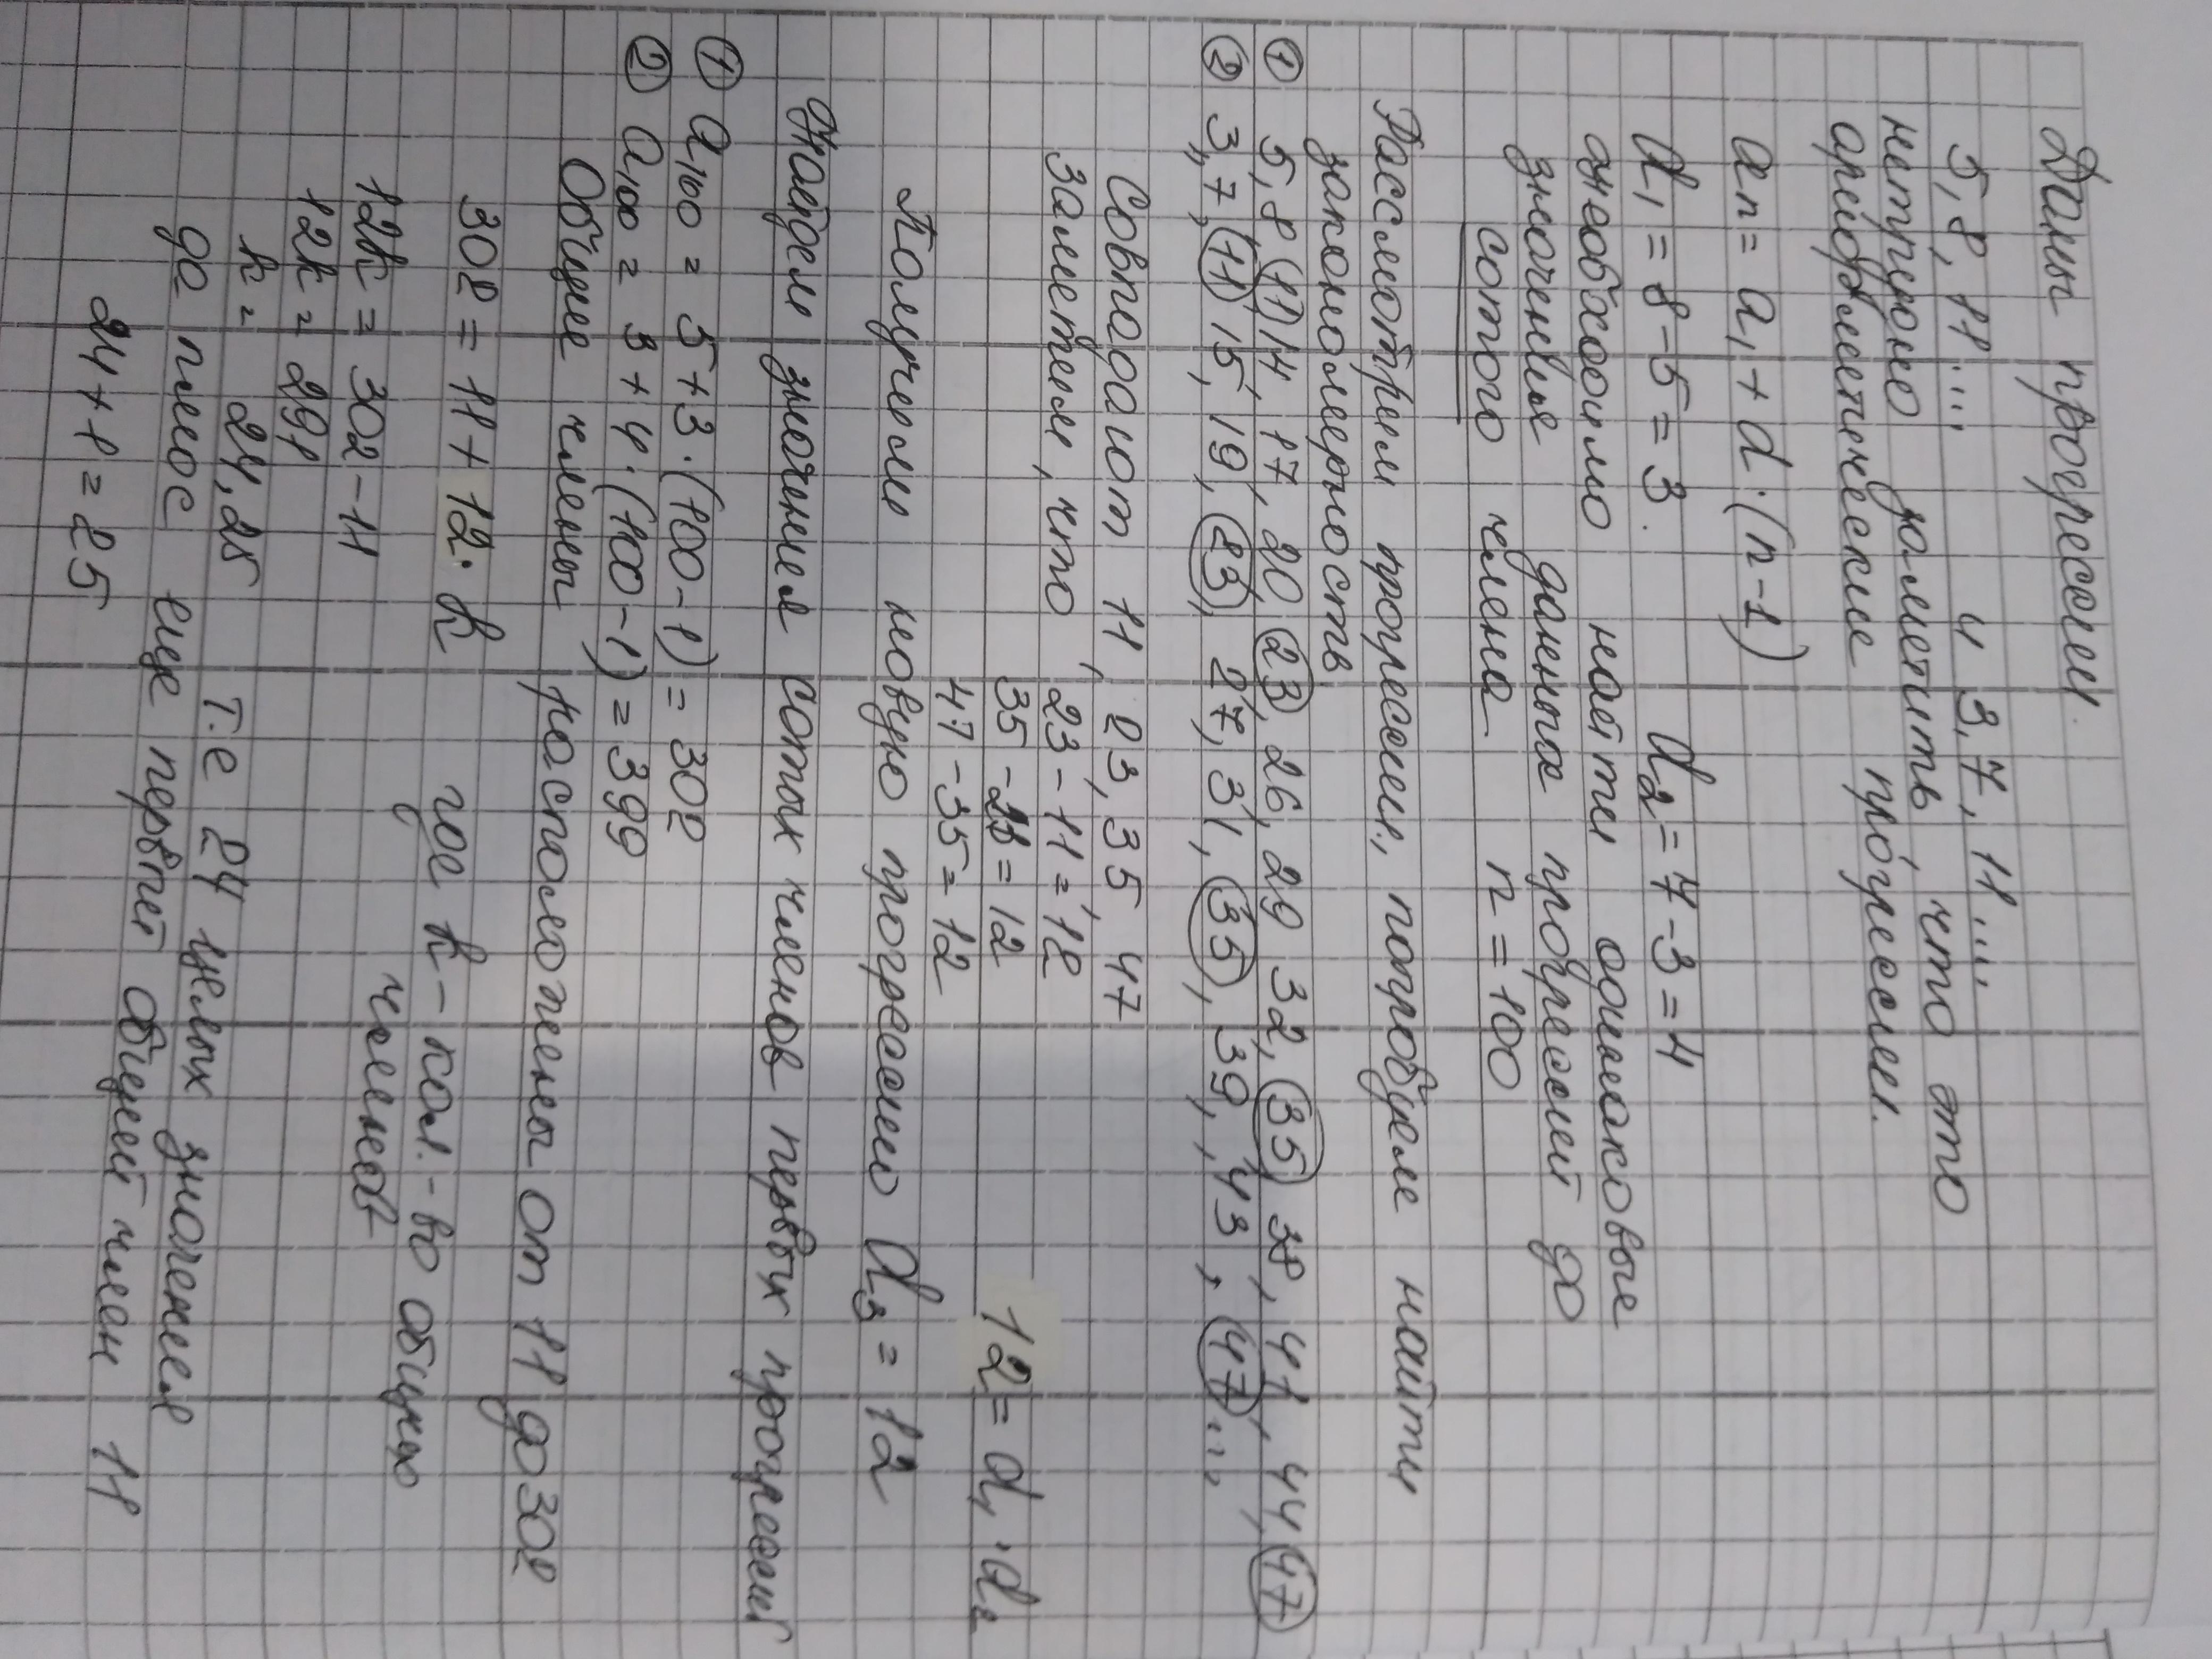 Даны прогрессии.
5, 8, 11.... и 3, 7, 11....
нетрудно заметить, что это
арифметические прогрессии.
an = a₁ + d·(n-1)
d₁ = 8-5=3. d₂=7-3=4
необходимо найти одинаковые
значения данных прогрессий до
сотого члена n=100
Рассмотрим прогрессии, попробуем найти
закономерность
① 5, 8, 11, 14, 17, 20, 23, 26, 29 32, 35 38, 41, 44, 47
② 3, 7, 11 15, 19, 23, 27, 31, 35, 39, 43, 47....
Совпадают 11, 23, 35 47
заметим, что 23-11=12
35-23=12
47-35=12 12=d₁·d₂
Получим новую прогрессию d₃=12
Найдем значения сотых членов первых прогрессий
① a₁₀₀ = 5+3·(100-1) = 302
② a₁₀₀ = 3+4·(100-1) = 399
Общие члены расположены от 11 до 302
302 = 11+12·k где k-кол-во общих
членов
12k = 302-11
12k = 291
k = 24,25 т.е 24 целых значения
да плюс еще первый общий член 11
24+1=25